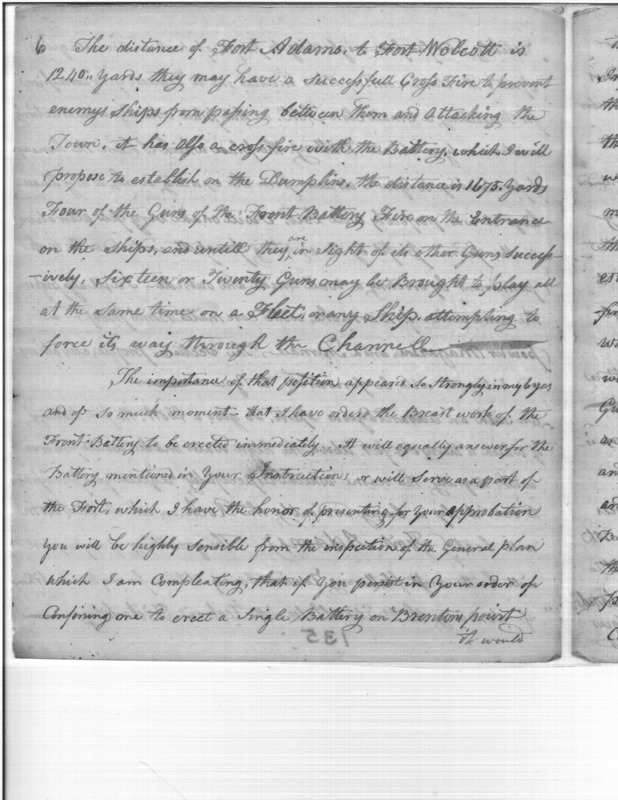 6 The distance of Fort Adams, to Fort Wolcott is
1240,, yards they may have a Successfull Cross Fire to prevent
enemys Ships from passing between Them and Attacking the
Town. it has Also a cross fire with the Battery, which I will
propose to establish on the Dumplins. the distance is 1675. Yards
Four of the Guns of the Front Battery Fire on the Entrance
on the Ships, and untill they are in Sight of its other Guns Success-
-ively. Sixteen or Twenty Guns may be Brought to play all
at the same time on a Fleet, or any Ship, attempting to
force its way through the Channell
The importance of that position appeared So Strongly in my Eyes
and of So much moment that I have orderd the Breast work of the
Front Battery to be erected immediately. It will equally answer for the
Battery mentioned in Your Instructions or will Serve as a part of
the Fort, which I have the honor of presenting for Your Approbation
you will be highly sensible from the inspection of the General plan
which I am Compleating, that if You persist in Your order of
Confining me to erect a Single Battery on Brentons point
it would
935